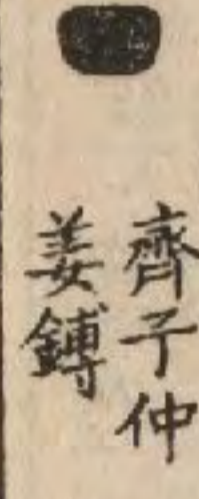 齊子仲
姜鎛